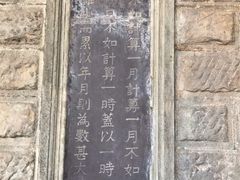 如計算一月計算一月不如
日不如計算一時蓋以一時
需累以年月則為數甚大